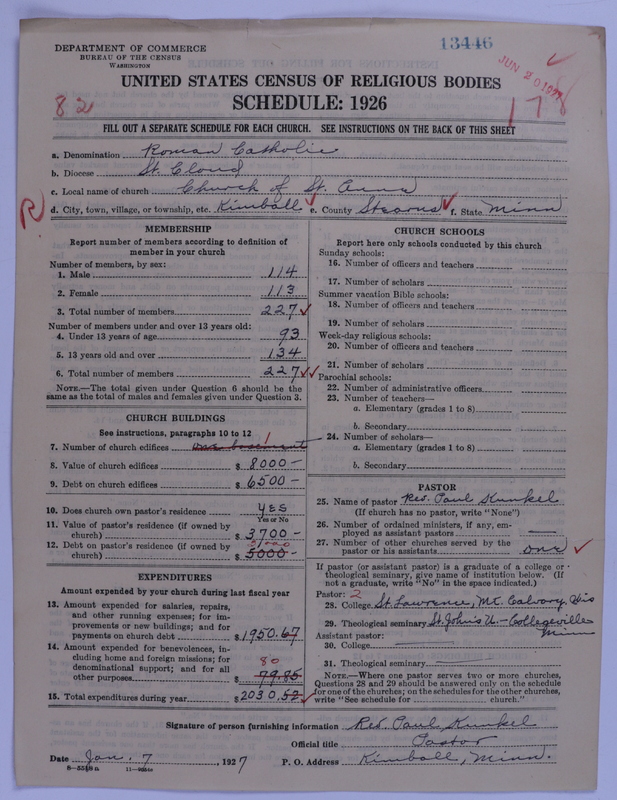 DEPARTMENT OF COMMERCE
BUREAU OF THE CENSUS
WASHINGTON
13446
JUN 20 1927
82
178
UNITED STATES CENSUS OF RELIGIOUS BODIES
SCHEDULE: 1926
FILL OUT A SEPARATE SCHEDULE FOR EACH CHURCH. SEE INSTRUCTIONS ON THE BACK OF THIS SHEET
a. Denomination Roman Catholic
b. Diocese St. Cloud
c. Local name of church Church of St. Anna
R d. City, town, village, or township, etc. Kimball e. County Stearns f. State Minn
MEMBERSHIP
Report number of members according to definition of
member in your church
Number of members, by sex:
1. Male 114
2. Female 113
3. Total number of members 227
Number of members under and over 13 years old:
4. Under 13 years of age 93
5. 13 years old and over 134
6. Total number of members 227
NOTE.—The total given under Question 6 should be the
same as the total of males and females given under Question 3.
CHURCH BUILDINGS
See instructions, paragraphs 10 to 12
7. Number of church edifices one basement 1
8. Value of church edifices $ 8000—
9. Debt on church edifices $ 6500—
10. Does church own pastor's residence yes
Yes or No
11. Value of pastor's residence (if owned by
church) $ 3700—
12. Debt on pastor's residence (if owned by
church) $ 5000—
EXPENDITURES
Amount expended by your church during last fiscal year
13. Amount expended for salaries, repairs,
and other running expenses; for im-
provements or new buildings; and for
payments on church debt $ 1950.67
14. Amount expended for benevolences, in-
cluding home and foreign missions; for
denominational support; and for all
80
other purposes $ 79.85
15. Total expenditures during year $ 2030.52
CHURCH SCHOOLS
Report here only schools conducted by this church
Sunday schools:
16. Number of officers and teachers
17. Number of scholars
Summer vacation Bible schools:
18. Number of officers and teachers
19. Number of scholars
Week-day religious schools:
20. Number of officers and teachers
21. Number of scholars
Parochial schools:
22. Number of administrative officers
23. Number of teachers—
a. Elementary (grades 1 to 8)
b. Secondary
24. Number of scholars—
a. Elementary (grades 1 to 8)
b. Secondary
PASTOR
25. Name of pastor Rev. Paul Kunkel
(If church has no pastor, write "None")
26. Number of ordained ministers, if any, em-
ployed as assistant pastors —
27. Number of other churches served by the
pastor or his assistants one
If pastor (or assistant pastor) is a graduate of a college or
theological seminary, give name of institution below. (If
not a graduate, write "No" in the space indicated.)
Pastor: 2
28. College St. Lawrence, Mt. Calvary, Wis
29. Theological seminary St. John's U.— Collegeville
Minn
Assistant pastor:
30. College
31. Theological seminary
NOTE.—Where one pastor serves two or more churches,
Questions 28 and 29 should be answered only on the schedule
for one of the churches; on the schedules for the other churches,
write "See schedule for church."
Signature of person furnishing information Rev. Paul Kunkel
Official title Pastor
Date Jan. 7, 1927 P. O. Address Kimball, Minn.